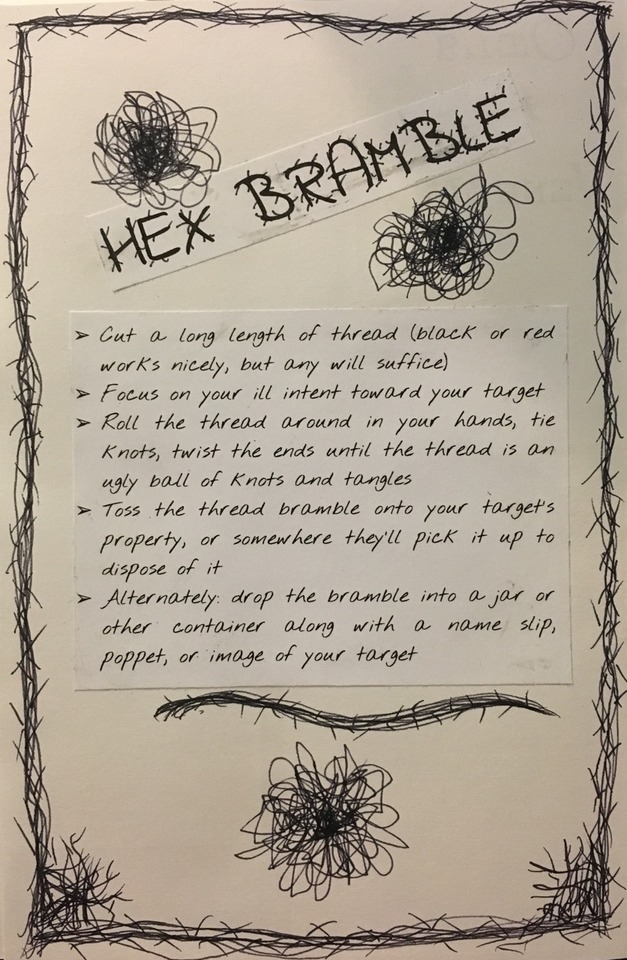 HEX BRAMBLE
➢ Cut a long length of thread (black or red
works nicely, but any will suffice)
➢ Focus on your ill intent toward your target
➢ Roll the thread around in your hands, tie
knots, twist the ends until the thread is an
ugly ball of knots and tangles
➢ Toss the thread bramble onto your target's
property, or somewhere they'll pick it up to
dispose of it
➢ Alternately: drop the bramble into a jar or
other container along with a name slip,
poppet, or image of your target